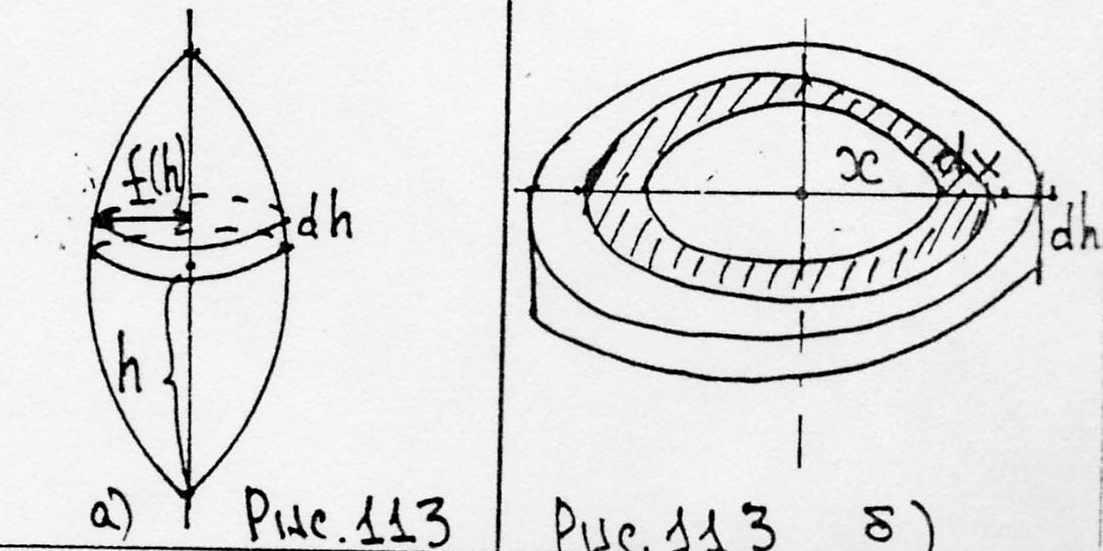 f(h)
dh
h
а) Рис. 113
x dx
dh
Рис. 113 б)